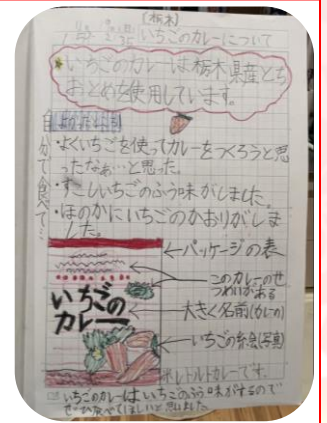 [栃木]
いちごのカレーについて
いちごのカレーは栃木県産とち
おとめを使用しています。
自分で食べて…
よかったところ
・よくいちごを使ってカレーをつくろうと思
ったなぁ…と思った。
・すこしいちごのふう味がしました。
・ほのかにいちごのかおりがしま
した。
←パッケージの表
このカレーのせ
つめいがある
いちごの
カレー
大きく名前(カレーの)
いちごの絵(写真)
※レトルトカレーです。
いちごのカレーはいちごのふう味がするので
ぜひ食べてほしいと思いました